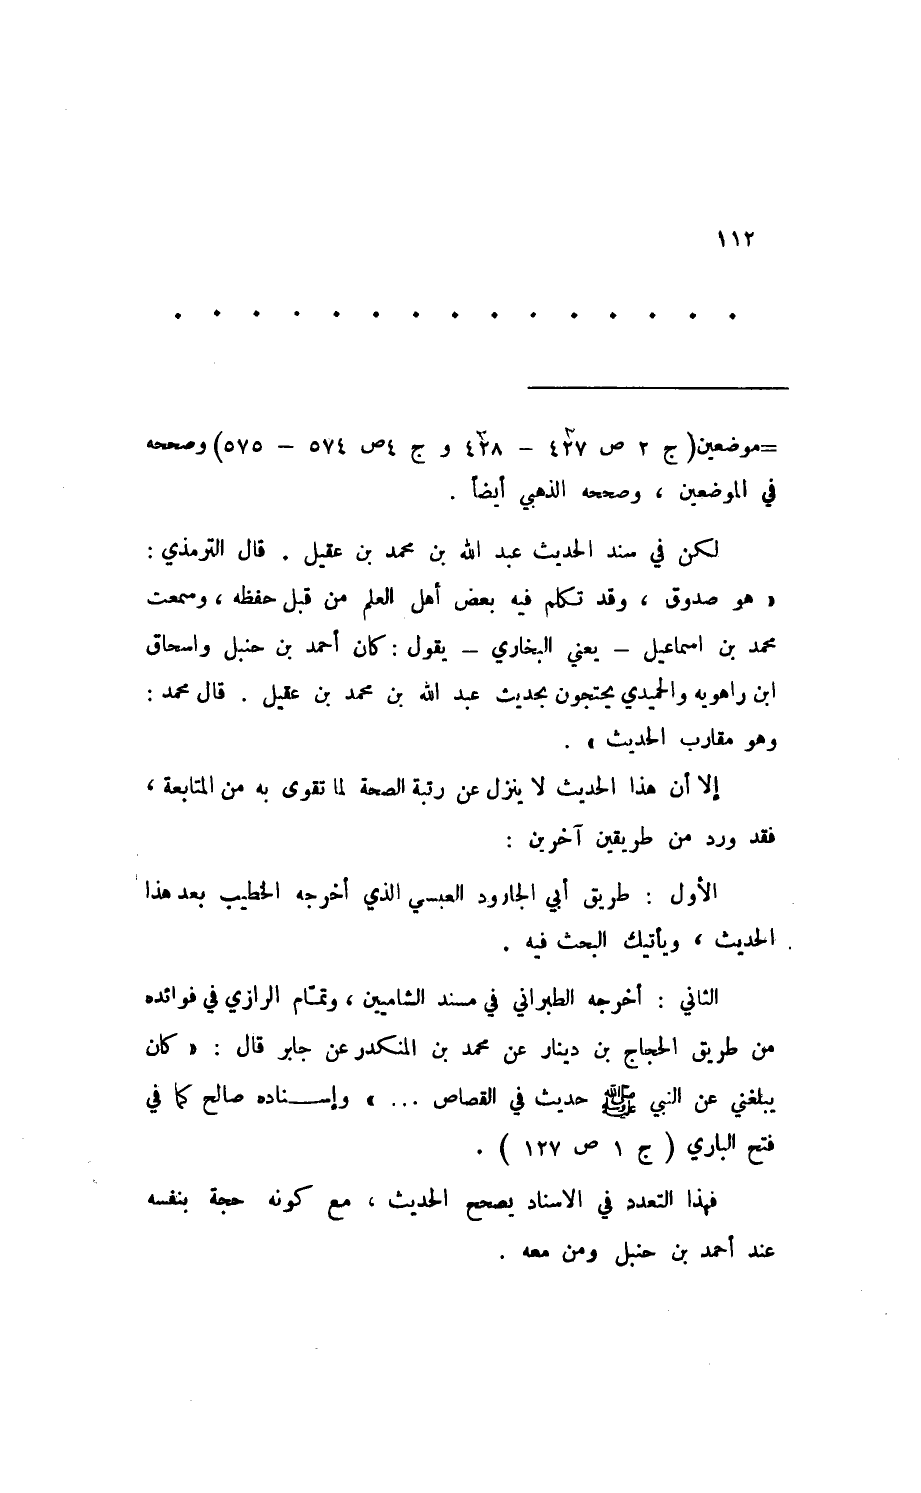 ١١٢
. . . . . . . . . . . . . . .
=موضعين( ج ٢ ص ٤٣٧ – ٤٣٨ و ج ٤ص ٥٧٤ – ٥٧٥) وصححه
في الموضعين ، وصححه الذهبي أيضاً .
لكن في سند الحديث عبد الله بن محمد بن عقيل . قال الترمذي :
« هو صدوق ، وقد تكلم فيه بعض أهل العلم من قبل حفظه ، وسمعت
محمد بن اسماعيل – يعني البخاري – يقول : كان أحمد بن حنبل واسحاق
ابن راهويه والحميدي يحتجون بحديث عبد الله بن محمد بن عقيل . قال محمد :
وهو مقارب الحديث » .
إلا أن هذا الحديث لا ينزل عن رتبة الصحة لما تقوى به من المتابعة ،
فقد ورد من طريقين آخرين :
الأول : طريق أبي الجارود العبسي الذي أخرجه الخطيب بعد هذا
الحديث ، ويأتيك البحث فيه .
الثاني : أخرجه الطبراني في مسند الشاميين ، وتمّام الرازي في فوائده
من طريق الحجاج بن دينار عن محمد بن المنكدر عن جابر قال : « كان
يبلغني عن النبي ﷺ حديث في القصاص ... » وإســـناده صالح كما في
فتح الباري ( ج ١ ص ١٢٧ ) .
فهذا التعدد في الاسناد يصحح الحديث ، مع كونه حجة بنفسه
عند أحمد بن حنبل ومن معه .